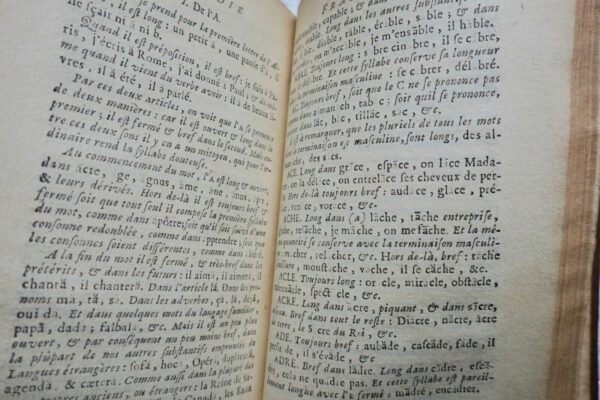 DIE
I. De l'A.
je prend pour la première lettre de
il est long: un petit a, une panse d'a, il
ne sçait ni a ni b.
Quand il est préposition, il est bref: je suis à
Paris, j'écris à Rome, j'ai donné à Paul
me quand il vient du verbe avoir: il a de beaux li-
vres, il a été, il a parlé.
Par ces deux articles, on voit que l'A se prononce
de deux manières: car il est ouvert & long dans le
premier; il est fermé & bref dans le second. Mais en-
tre ces deux sons il y en a un mitoyen, qui pour l'or-
dinaire rend la syllabe douteuse.
Au commencement du mot, l'A est long & ouvert,
dans acre, ge, agnus, ame, ane, anus, apre,
& leurs dérivés. Hors de-là il est toujours bref &
fermé soit que tout seul il compose la première syllabe
du mot, comme dans apôtre; soit qu'il soit suivi d'une
consonne redoublée, comme dans apprendre; soit que
les consonnes soient différentes, comme dans
A la fin du mot il est fermé, & très-bref dans les
prétérits, & dans les futurs: il aima, il aimera, il
chanta, il chantera. Dans l'article là. Dans les pro-
noms ma, ta, sa. Dans les adverbes, çà, là, déjà,
oui da. Et dans quelques mots du langage familier,
papa, dada; falbala, &c. Mais il est un peu plus
ouvert, & par conséquent un peu moins bref dans
la plûpart de nos autres substantifs empruntés des
Langues étrangeres: sofa, hoca, Opéra, duplicata,
agenda. & cætera. Comme aussi dans la plûpart des
anciens, ou étrangers: la Reine de Sa-
Canada, les Eaux
FRAN
capable; & dans
Long dans les autres substantifs:
able, diable, rable, érable, sable, &
dans n'accable, je m'ensable, il hable.
ABRE. Toujours long: sabre cinabre, il se
cabre, délabré. Et cette syllabe conserve sa longueur
avec la terminaison masculine: se cabrer, délabré.
AC. Toujours bref, soit que le C ne se prononce pas
dans almanach, tabac; soit qu'il se prononce,
dans lac, bac, tillac, sac, &c.
Il est à remarquer, que les pluriels de tous les mots
terminaison est masculine, sont longs, des al-
manachs, des sacs.
ACE. Long dans grace, espace, on lace Mada-
me, on la délace, on entrelace ses cheveux de per-
les. Hors de-là toujours bref: audace, glace, pré-
face, tin vorace, &c.
ACHE. Long dans (a) lache, tache entreprise,
gache, relache, je mache, on me fache. Et la mê-
me quantité se conserve avec la terminaison masculi-
ne: macher, relacher, &c. Hors de-là, bref: tache
souillure, moustache, vache, il se cache, &c.
ACLE. Toujours long: oracle, miracle, obstacle,
tabernacle, spectacle, &c.
ACRE. Long dans acre, piquant, & dans sacre,
oiseau. Bref dans tout le reste: Diacre, nacre, acre
de terre, le Sacre du Roi, &c.
ADE. Toujours bref: aubade, cascade, fade, il
persuade, il s'évade, &c.
ADRE. Bref dans ladre. Long dans cadre, escadre,
cela ne quadre pas. Et cette syllabe est pareil-
lement longue avec l'E fermé: madré, encadrer.